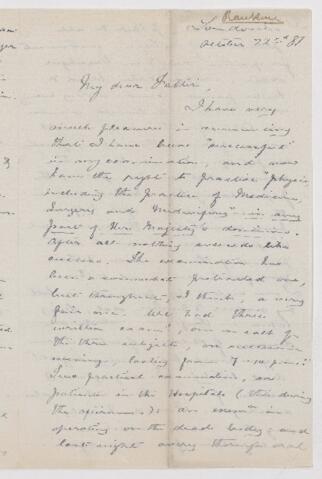 London
October 22nd 81
My dear Father,
I have very
much pleasure in announcing
that I have been "successful"
in my examination, and now
have the right to practise physic
including the practice of Medicine,
Surgery and Midwifery "in any
part of Her Majesty's dominions.
After all nothing succeeds like
success. The examination has
been a somewhat protracted one,
but throughout, I think, a very
fair one. We had three
written exams, one on each of
the three subjects, on successive
evenings, lasting from 7 to 10 p.m.
Two practical examinations, on
patients in the Hospitals (then during
the afternoons) an exam in
operating on the dead body, and
last night a very thorough oral